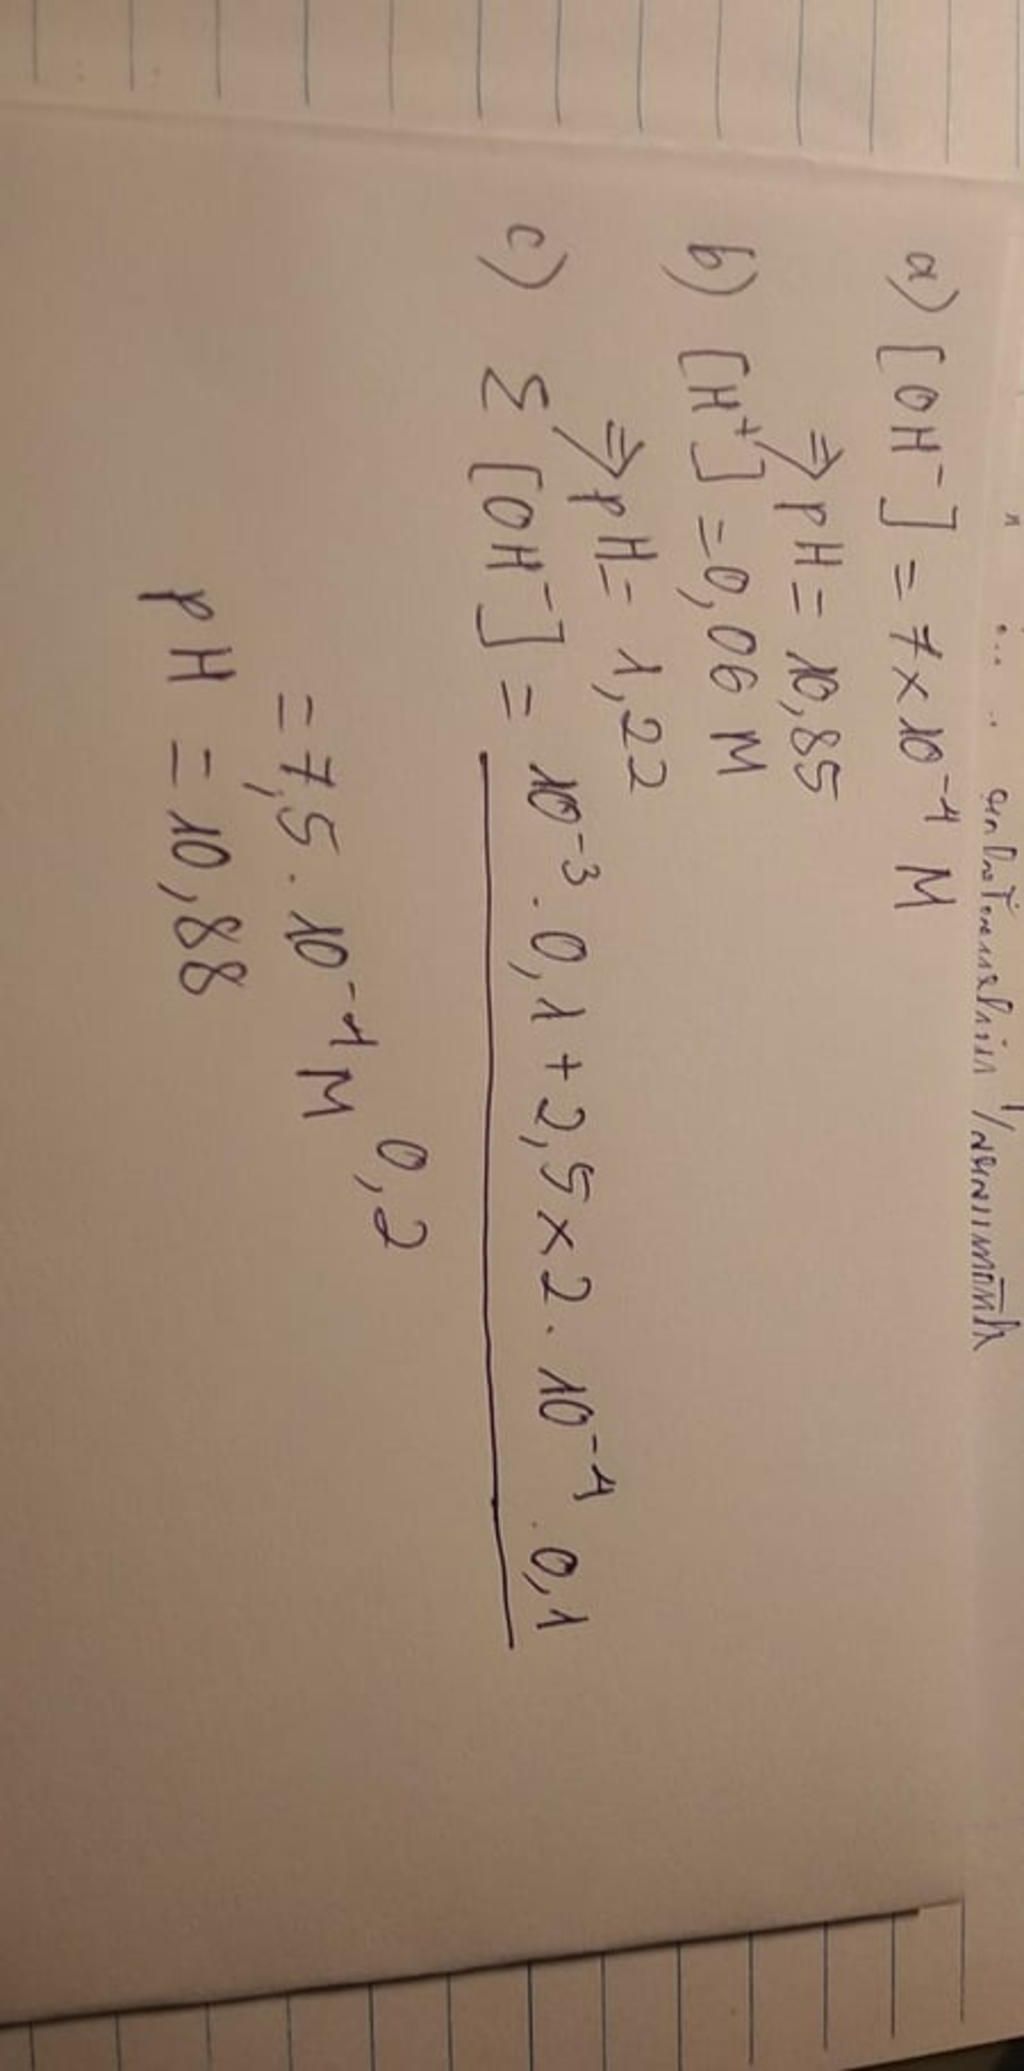 a) [OH⁻] = 7 x 10⁻⁴ M
⇒ pH = 10,85
b) [H⁺] = 0,06 M
⇒ pH = 1,22
c) Σ [OH⁻] = 10⁻³ · 0,1 + 2,5 x 2 · 10⁻⁴ · 0,1
0,2
= 7,5 · 10⁻⁴ M
pH = 10,88